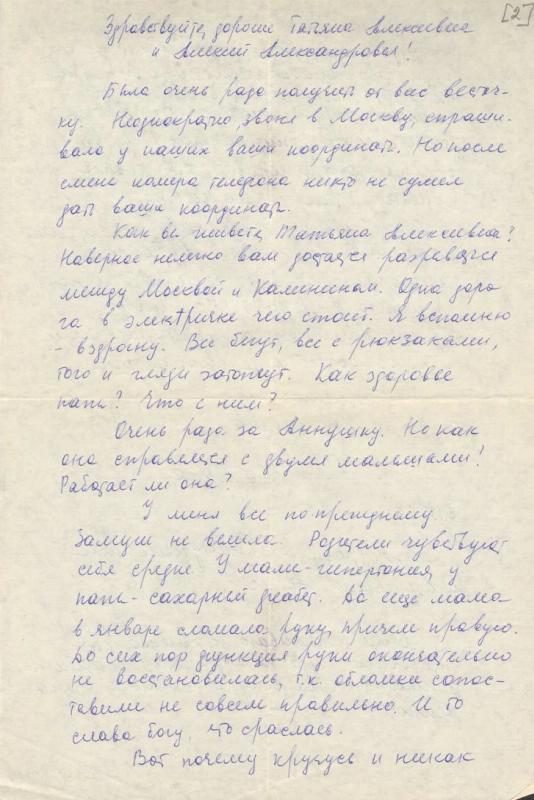 [2]
Здравствуйте, дорогие Татьяна Алексеевна
и Алексей Александрович!
Была очень рада получить от вас весточ-
ку. Неоднократно, звоня в Москву, спраши-
вала у наших ваши координаты. Но после
смены номера телефона никто не сумел
дать ваши координаты.
Как вы живете, Татьяна Алексеевна?
Наверное нелегко вам достается разрываться
между Москвой и Калинином. Одна доро
га в электричке чего стоит. Я вспомню
- вздрогну. Все бегут, все с рюкзаками,
того и гляди затопчут. Как здоровье
папы? Что с ним?
Очень рада за Аннушку. Но как
она справляется с двумя малышами!
Работает ли она?
У меня все по прежнему.
Замуж не вышла. Родители чувствуют
себя средне. У мамы - гипертония, у
папы - сахарный диабет. Да еще мама
в январе сломала руку, причем правую.
До сих пор функция руки окончательно
не восстановилась, т.к. обломки сопос-
тавили не совсем правильно. И то
слава богу, что сраслась.
Вот почему кручусь и никак